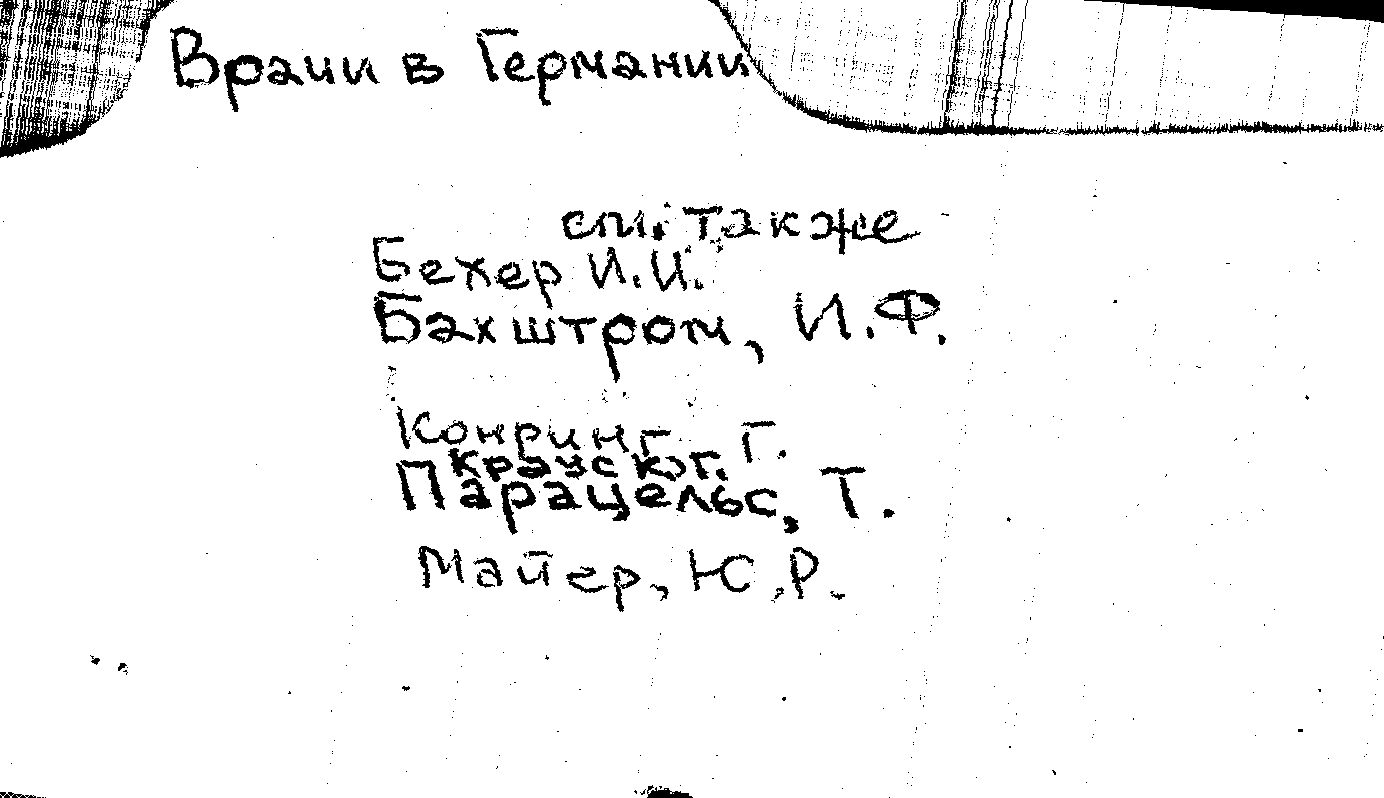 Врачи в Германии
см. также
Бехер И.И.
Бахштром, И.Ф.
Конринг Г.
Краус К.Г.
Парацельс, Т.
Майер, Ю.Р.